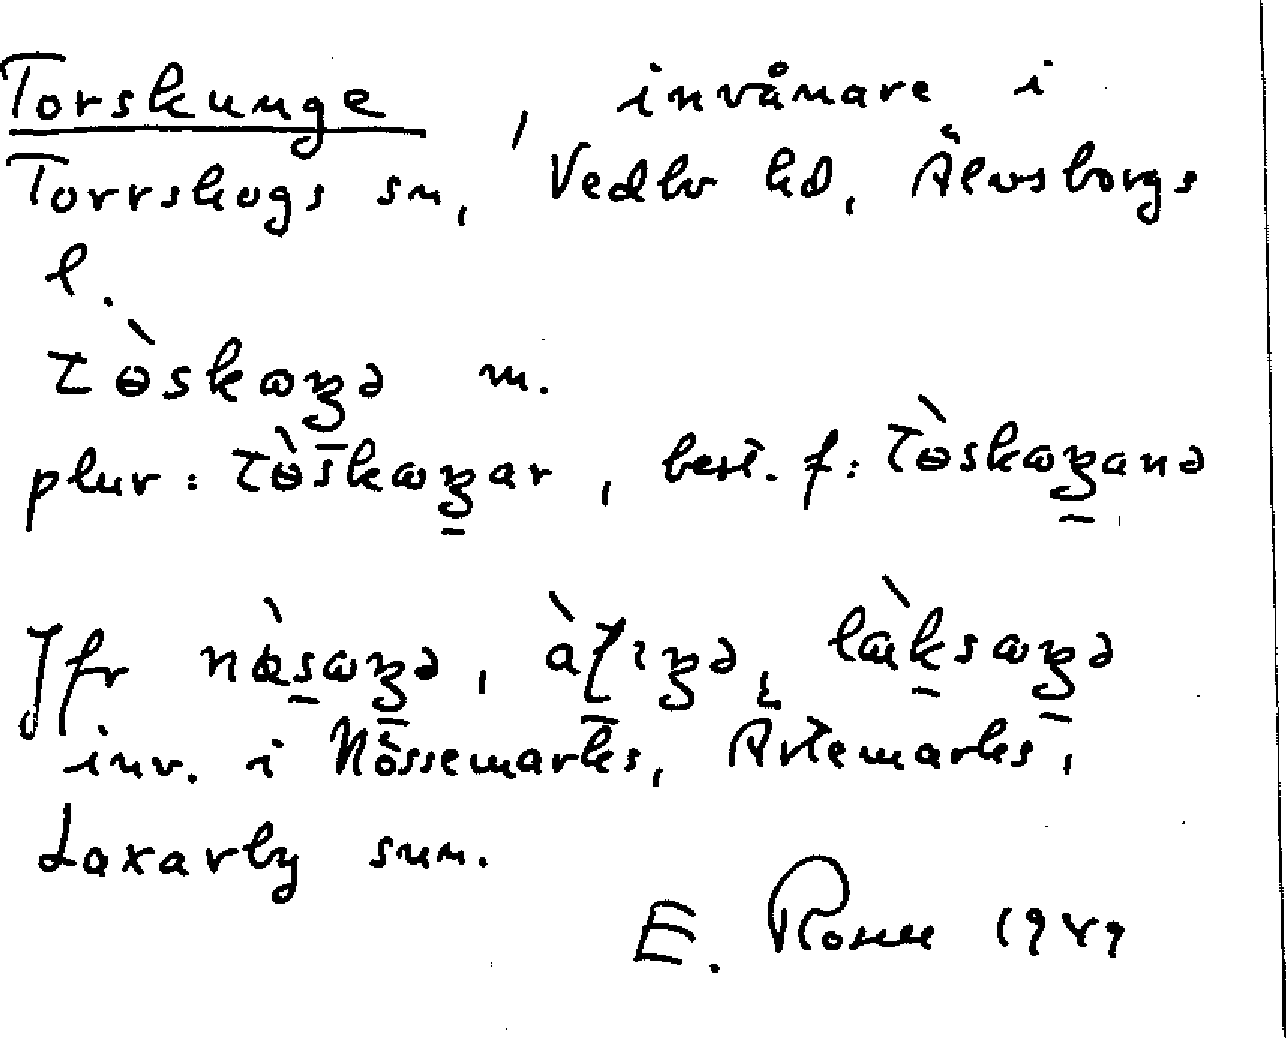 Torskunge, invånare i
Torrskogs sn, Vedbo hd, Älvsborgs
l.
tɵ̀skɷꜧə m.
plur: tɵ̀skɷꜧar, best. f: tɵ̀skɷꜧanə
Jfr næ̀sɷꜧə, àʈɩꜧə, làksɷꜧə
inv. i Nössemarks, Ärtemarks,
Laxarby snr.
E. Rosell 1949